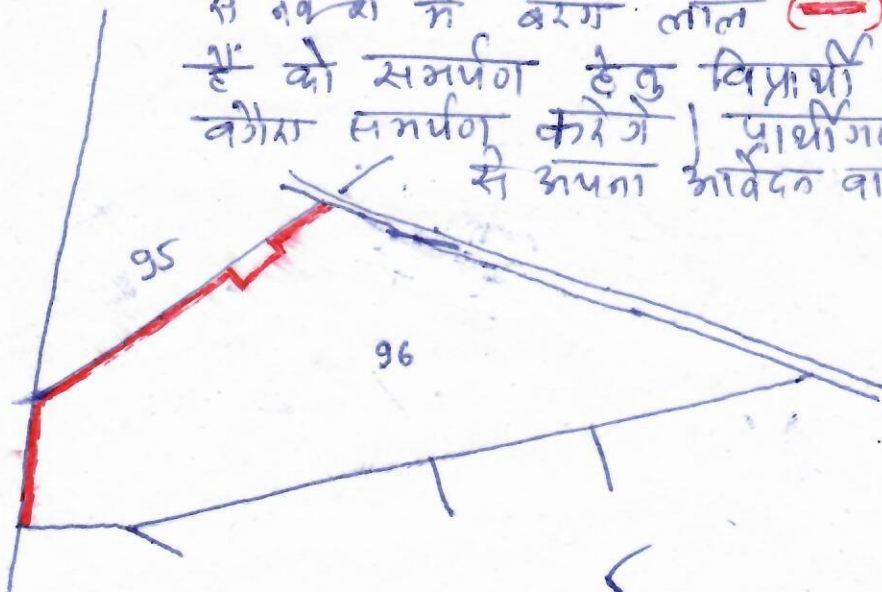 में बरंग लाल (
है को समर्पण हेतु विप्रार्थी
वगैरा समर्पण करेगे। प्रार्थीग
से अपना आवेदन वा
95
96